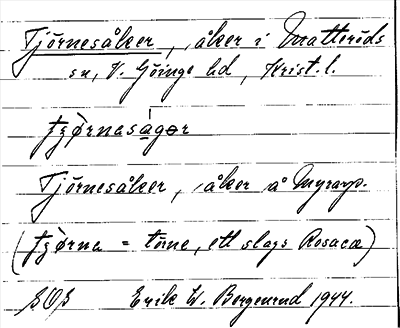 Tjörnesåker, åker i Matteröds
sn, V. Göinge hd, Krist. l.
tjø̀rnəságər
Tjörnesåker, åker å Myrarp.
(tjø̀rna = törne, ett slags Rosacæ)
SOS Erik W. Bergenrud 1944.